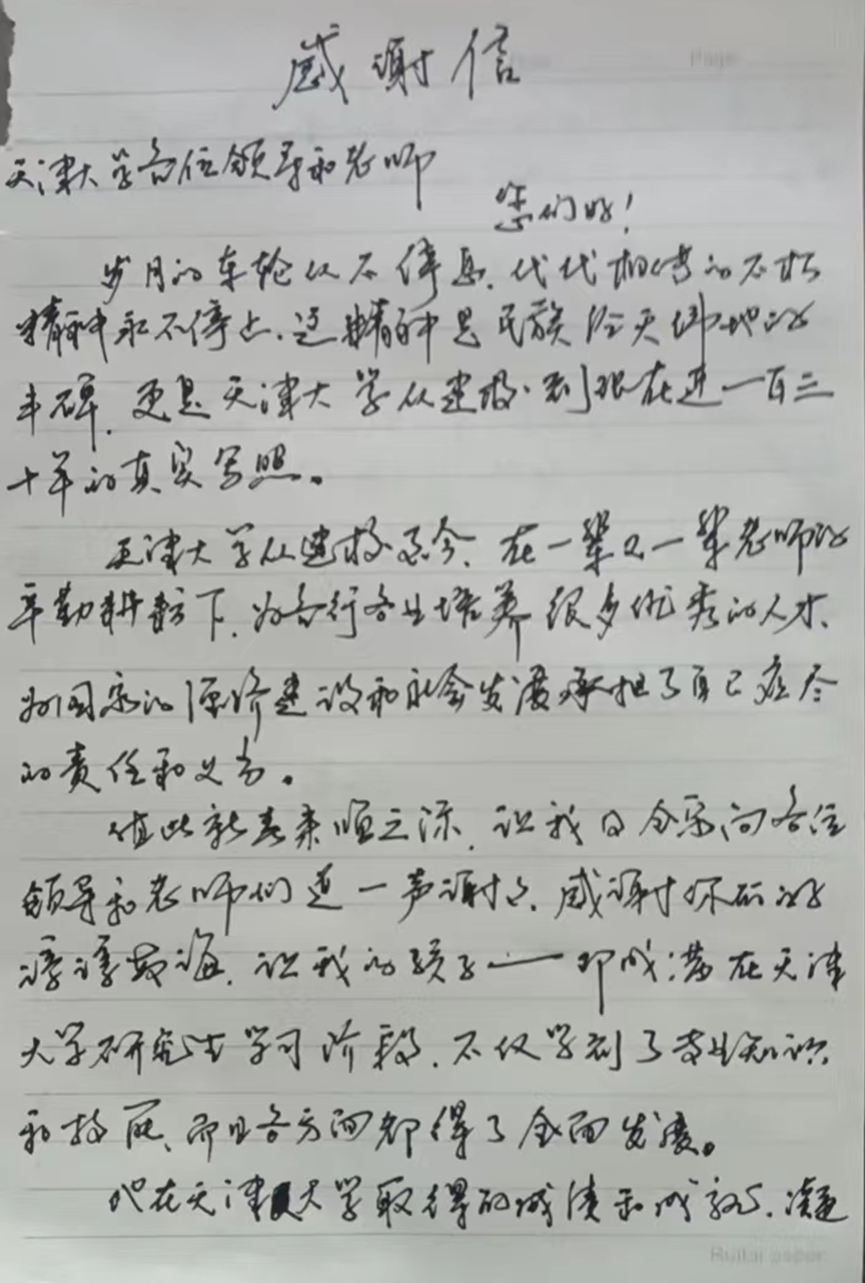 感谢信
天津大学各位领导和老师
您们好！
岁月的车轮从不停息，代代相传的不朽
精神永不停止，这精神是民族顶天地的
丰碑，更是天津大学从建校到现在近一百三
十年的真实写照。
天津大学从建校至今，在一辈又一辈老师的
辛勤耕耘下，为各行各业培养很多优秀的人才，
为国家的经济建设和社会发展承担了自己应尽
的责任和义务。
值此新春来临之际，让我和全家向各位
领导和老师们道一声谢谢，感谢你们的
谆谆教诲，让我的孩子——在天津
大学研究生学习阶段，不仅学到了专业知识
和技能，而且各方面都得了全面发展。
他在天津大学取得的成绩和成就，凝
Page